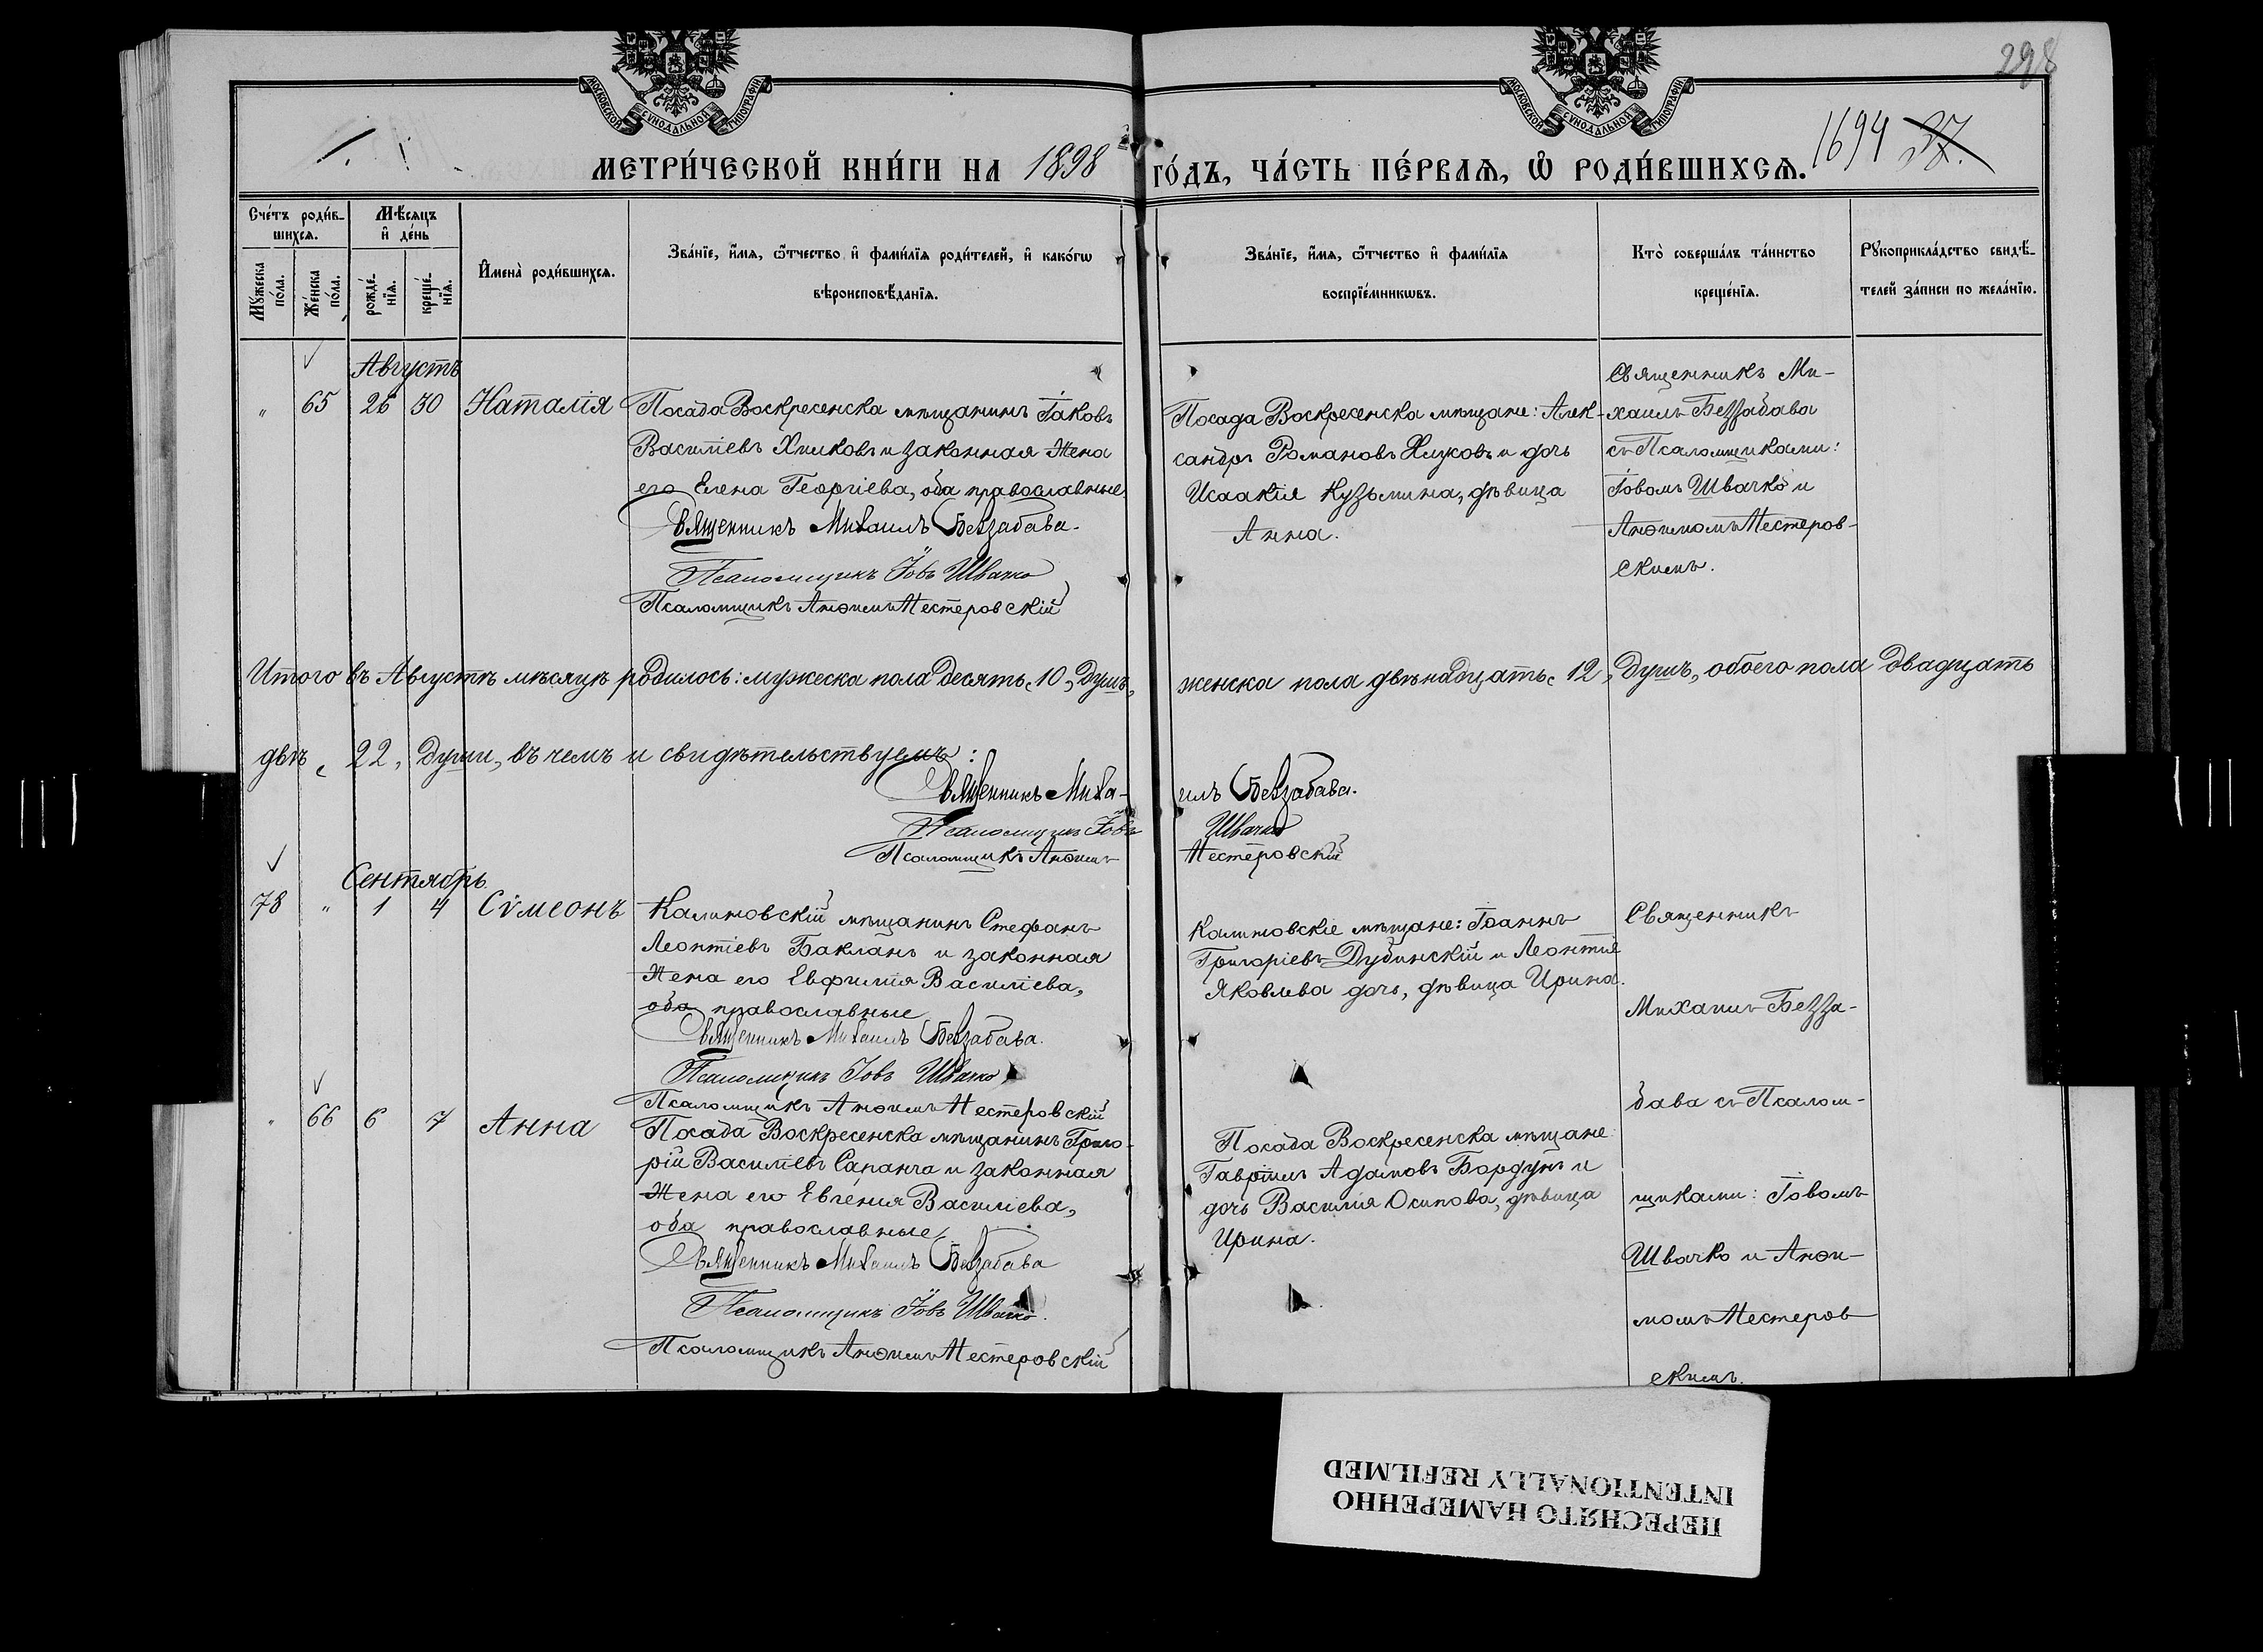 298
МОСКОВСКОЙ СѴНОДАЛЬНОЙ ТИПОГРАФІИ
МОСКОВСКОЙ СѴНОДАЛЬНОЙ ТИПОГРАФІИ
МЕТРИ́ЧЕСКОЙ КНИ́ГИ НА 1898 ГО́ДЪ, ЧА́СТЬ ПЕ́РВАѦ, Ѡ҆ РОДИ́ВШИХСѦ. 1694 37.
Сче́тъ роди́в-
шихсѧ.
Мꙋ́жеска
по́ла.
Же́нска
по́ла.
Мѣ́сѧцъ
и҆ де́нь
рожде́-
нїѧ.
креще́-
нїѧ.
И҆мена̀ роди́вшихсѧ.
Зва́нїе, и҆́мѧ, ѻ҆́тчество и҆ фами́лїѧ роди́телей, и҆ како́гѡ
вѣроисповѣ́данїѧ.
Зва́нїе, и҆́мѧ, ѻ҆́тчество и҆ фами́лїѧ
воспрїе́мникѡвъ.
Кто̀ соверша́лъ та́инство
креще́нїѧ.
Рꙋкоприкла́дство свидѣ́-
телей за́писи по жела́нїю.
Августъ
" 65 26 30 Наталія
Посада Воскресенска мѣщанинъ Іаковъ
Василіевъ Хилковъ и законная жена
его Елена Георгіева, оба православные.
Священникъ Михаилъ Беззабава.
Псаломщикъ Іовъ Швачко
Псаломщикъ Анѳимъ Нестеровскій
Посада Воскресенска мѣщане: Алек-
сандръ Романовъ Жуковъ и дочь
Исаакія Кузьмина, дѣвица
Анна.
Священникъ Ми-
хаилъ Беззабава
съ Псаломщиками:
Іовомъ Швачко и
Анѳимомъ Нестеров-
скимъ.
Итого въ Августѣ мѣсяцѣ родилось: мужеска пола десять, 10, душъ, женска пола двѣнадцать, 12, душъ, обоего пола двадцать
двѣ, 22, души, въ чемъ и свидѣтельствуемъ:
Священникъ Михаилъ Беззабава.
Псаломщикъ Іовъ Швачко
Псаломщикъ Анѳимъ Нестеровскій
Сентябрь
78 " 1 4 Сѵмеонъ
Калиновскій мѣщанинъ Стефанъ
Леонтіевъ Бакланъ и законная
жена его Евфимія Василіева,
оба православные
Священникъ Михаилъ Беззабава.
Псаломщикъ Іовъ Швачко
Псаломщикъ Анѳимъ Нестеровскій
Калиновскіе мѣщане: Іоаннъ
Григоріевъ Дубинскій и Леонтія
Яковлева дочь, дѣвица Ирина.
Священникъ
Михаилъ Безза-
бава съ Псалом-
щиками: Іовомъ
Швачко и Анѳи-
момъ Нестеров-
скимъ.
" 66 6 7 Анна
Посада Воскресенска мѣщанинъ Григо-
рій Василіевъ Саранча и законная
жена его Евгенія Василіева,
оба православные
Священникъ Михаилъ Беззабава
Псаломщикъ Іовъ Швачко.
Псаломщикъ Анѳимъ Нестеровскій
Посада Воскресенска мѣщане
Гавріилъ Адамовъ Бордунъ и
дочь Василія Осипова, дѣвица
Ирина.
ПЕРЕСНЯТО НАМЕРЕННО
INTENTIONALLY REFILMED